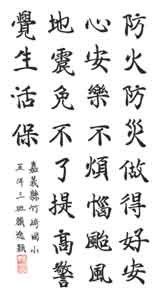 防火防災做得好安
心安樂不煩惱颱風
地震免不了提高警
覺生活保
嘉義縣竹崎國小
五年三班